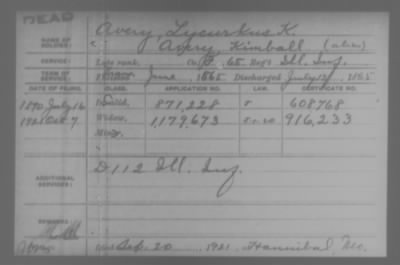 DEAD
Avery, Lycurkus K.
NAME OF SOLDIER: Avery, Kimball (alias)
SERVICE: Late rank, Co. , 65 Reg't Ill. Inf.
TERM OF SERVICE: June , 1865 Discharged July 12, 1865
DATE OF FILING. CLASS. APPLICATION NO. LAW. CERTIFICATE NO.
1890 July 16 Invalid, 871,228 608768
1921 Oct 7 Widow, 1,179,673 916,233
Minor,
D 112 Ill. Inf.
ADDITIONAL SERVICES:
REMARKS:
Died Sep. 20 1921, Hannibal, Mo.